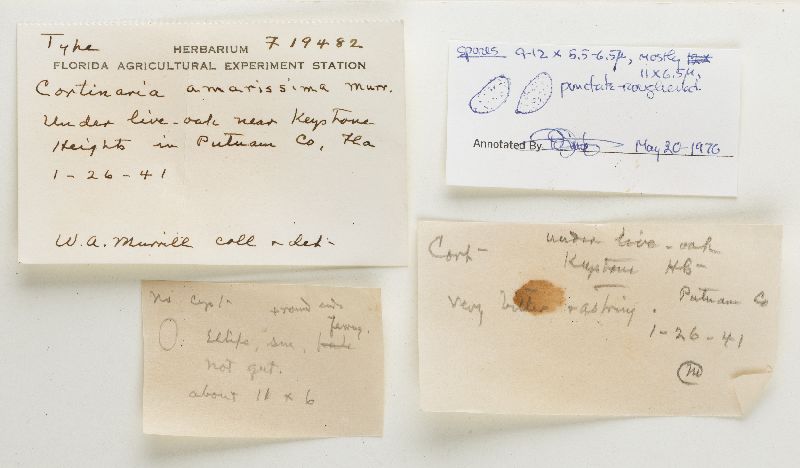 Type HERBARIUM F 19482
FLORIDA AGRICULTURAL EXPERIMENT STATION
Cortinaria amarissima Murr.
Under live-oak near Keystone
Heights in Putnam Co, Fla
1-26-41
W. A. Murrill coll & det-
spores 9-12 x 5.5-6.5µ, mostly
11 x 6.5µ,
punctate-roughened.
Annotated By May 20-1976
no cyst- & round ends
ferrug.
Ellips, sm,
not gut.
about 11 x 6
Cort- under live-oak
Keystone Hts-
Putnam Co
very bitter & astring.
1-26-41
M